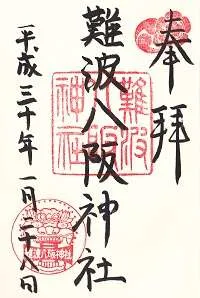 奉拝
難波八阪神社
難波八阪神社
平成三十年一月二十八日
難波八阪神社